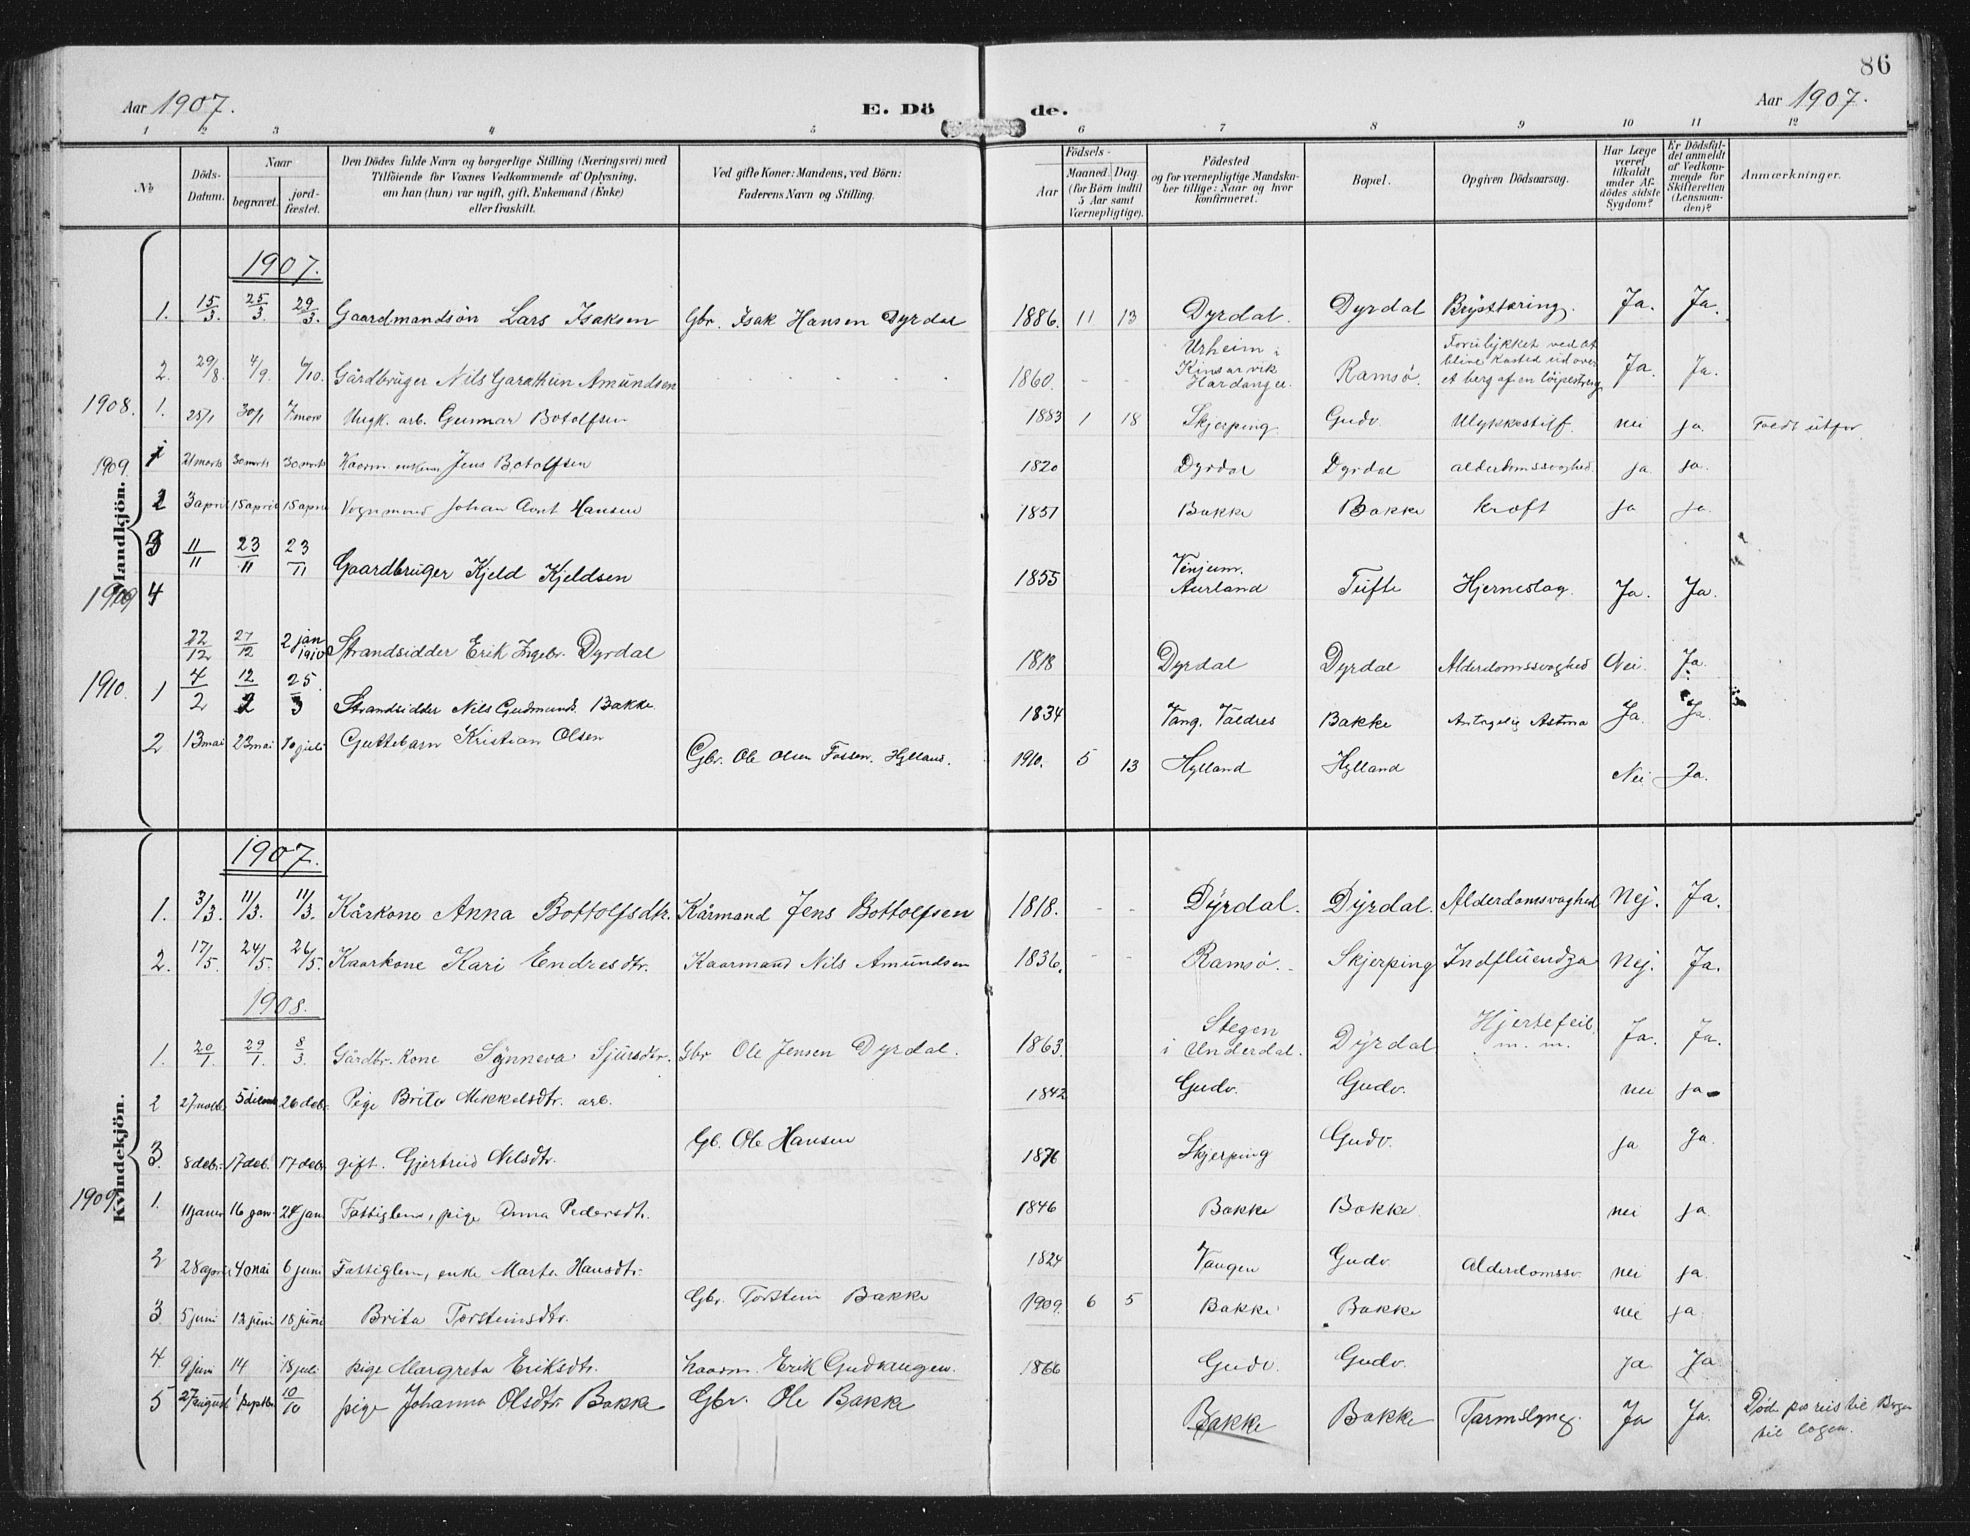 86
Aar 1907. E. Dö de. Aar 1907.
1 2 3 4 5 6 7 8 9 10 11 12
No
Döds-Datum.
Naar
begravet.
jord-fæstet.
Den Dödes fulde Navn og borgerlige Stilling (Næringsvei) med
Tilföiende for Voxnes Vedkommende af Oplysning,
om han (hun) var ugift, gift, Enkemand (Enke)
eller fraskilt.
Ved gifte Koner: Mandens, ved Börn:
Faderens Navn og Stilling.
Födsels-
Aar
Maaned. Dag.
(for Börn indtil
5 Aar samt
Værnepligtige).
Födested
og for værnepligtige Mandska-
ber tillige: Naar og hvor
konfirmeret.
Bopæl.
Opgiven Dödsaarsag.
Har Læge
været
tilkaldt
under Af-
dödes sidste
Sygdom?
Er Dödsfal-
det anmeldt
af Vedkom-
mende for
Skifteretten
(Lensman-
den)?
Anmærkninger.
Mandkjön.
1907.
1. 15/3 25/3. 29/3. Gaardmandsön Lars Isaksen Gbr. Isak Hansen Dyrdal 1886. 11 13 Dyrdal. Dyrdal Brysttæring. Ja. Ja.
2. 29/8 4/9 6/10. Gårdbruger Nils Garathun Amundsen 1860. - - Urheim i Kinsarvik Hardanger. Ramsö. Forulykket ved at blive kasted ud over et berg af en löipestreng Ja. Ja.
1908. 1. 25/1 30/1 7 mars Ungk. arb. Gunnar Botolfsen 1883 1 18 Skjerping Gudv. Ulykkestilf. nei ja. Faldt utfor.
1909. 1 21 marts 30 marts 30 marts Kaarm. enkem. Jens Botolfsen 1820 Dyrdal Dyrdal alderdomssvaghed. ja ja.
2 3 april 15 april 15 april Vognmand Johan Arnt Hansen 1851 Bakke Bakke Kræft ja ja.
3 11/11 23/11 23/11 Gaardbruger Kjeld Kjeldsen 1855 Venjum. Aurland Tufte Hjerneslag. Ja. Ja.
1909 4 22/12 27/12 2 jan 1910 Strandsidder Erik Ingebr. Dyrdal 1818 Dyrdal Dyrdal Alderdomssvaghed Nei. Ja.
1910. 1 4/2 12/2 25./3 Strandsidder Nils Gudmunds. Bakke 1834 Vang. Valdres Bakke Antagelig Astma Ja. Ja.
2 13 mai 22 mai 10 juli Guttebarn Kristian Olsen Gbr. Ole Olsen Fossen. Hylland. 1910. 5 13 Hylland Hylland Nei Ja.
Kvindekjön.
1907.
1. 3/3. 11/3. 11/3. Kårkone Anna Bottolfsdtr. Kårmand Jens Bottolfsen 1818. - - Dyrdal. Dyrdal. Alderdomsvaghed Nej. Ja.
2. 17/5. 24/5. 26/5. Kaarkone Kari Endresdtr. Kaarmand Nils Amundsen 1836. - - Ramsö. Skjerping Indfluendza Nej. Ja.
1908.
1. 20/1. 29/1. 8/3. Gårdbr. Kone Synneva Sjursdtr. Gbr Ole Jensen Dyrdal. 1863. Stegen i Underdal. Dyrdal Hjertefeil. m. m. Ja. Ja.
2 27 novbr. 26 debr. Pige Brita Mikkelsdtr. arb. 1842 Gudv. Gudv. nei ja
3. 8 debr. 17 deb. 17 debr gift. Gjertrud Nilsdtr. Gb. Ole Hansen 1876 Skjerping Gudv. ja Ja.
1909. 1. 11 januar 16 jan. 24 jan. Fattiglem, pige Anna Pedersdtr. 1846 Bakke Bakke nei ja.
2 28 april 4 mai 6 juni Fattiglem, enke Marta Hansdtr. 1824 Vangen Gudv. Alderdomssv. nei ja.
3 5 juni 13 juni 18 juni Brita Torsteinsdtr. Gbr. Torstein Bakke 1909. 6 5 Bakke Bakke nei ja.
4. 9 juni 14 18 juli pige Margreta Eriksdtr. kaarm. Erik Gudvangen. 1866 Gudv. Gudv. ja Ja
5 27 august 1 septbr. 10/10 pige Johanna Olsdtr Bakke Gbr. Ole Bakke Bakke Bakke Tarmslyng. Ja Ja. Död paa reis til
til lægen.